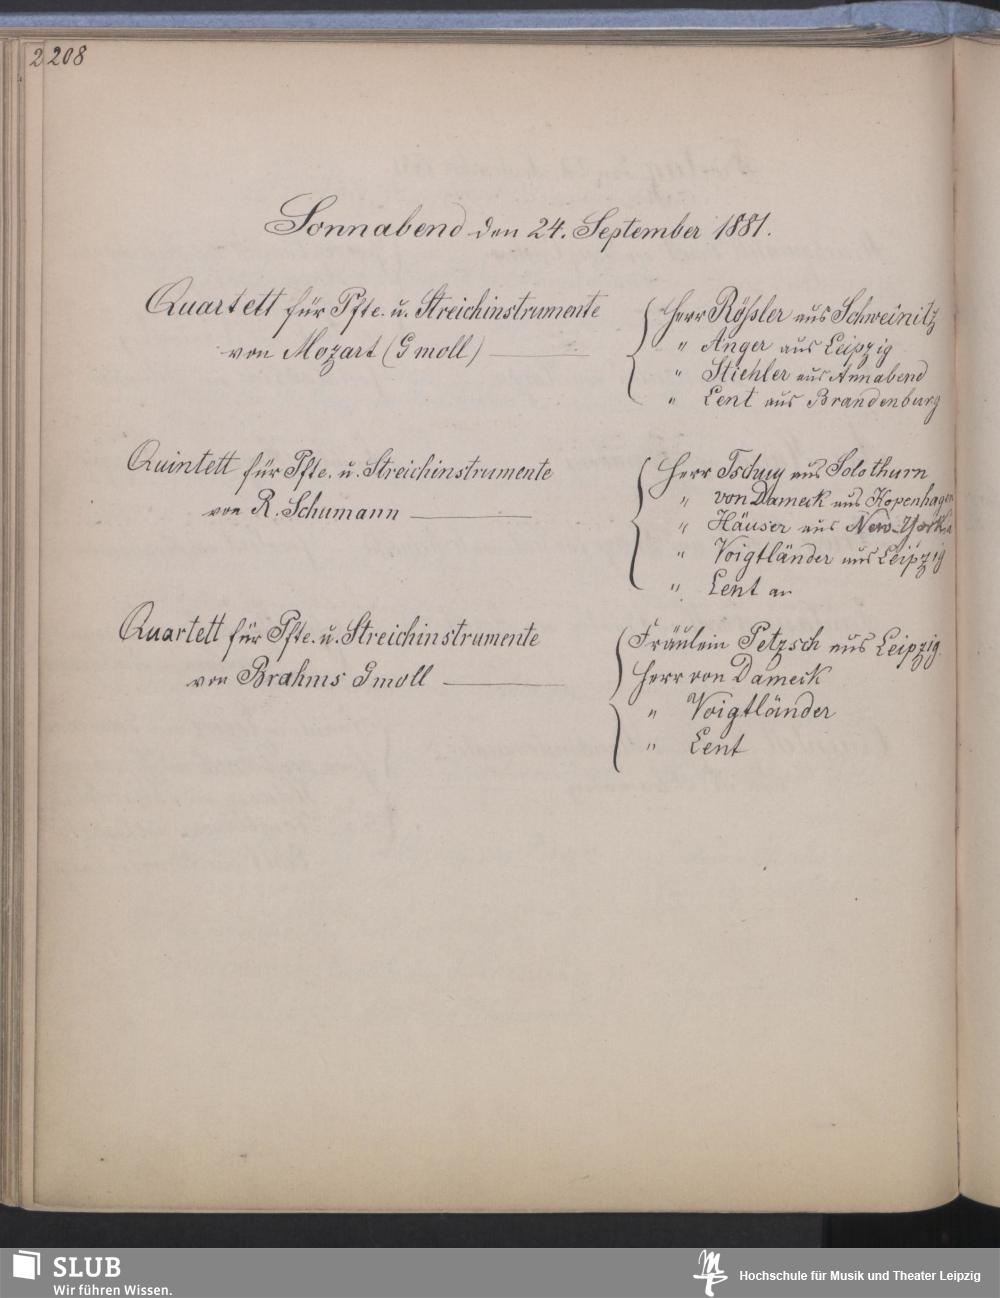 208
Sonnabend den 24. September 1881.
Quartett für Pfte. u. Streichinstrumente
von Mozart (G moll)
Herr Rößler aus Schweinitz
" Anger aus Leipzig
" Stiehler aus Annabend
" Lent aus Brandenburg
Quintett für Pfte. u. Streichinstrumente
von R. Schumann
Herr Tschuy aus Solothurn
" von Dameck aus Kopenhagen
" Häuser aus New-York
" Voigtländer aus Leipzig
" Lent
Quartett für Pfte. u. Streichinstrumente
von Brahms G moll
Fräulein Petzsch aus Leipzig.
Herr von Dameck
" Voigtländer
" Lent
SLUB
Wir führen Wissen.
Hochschule für Musik und Theater Leipzig